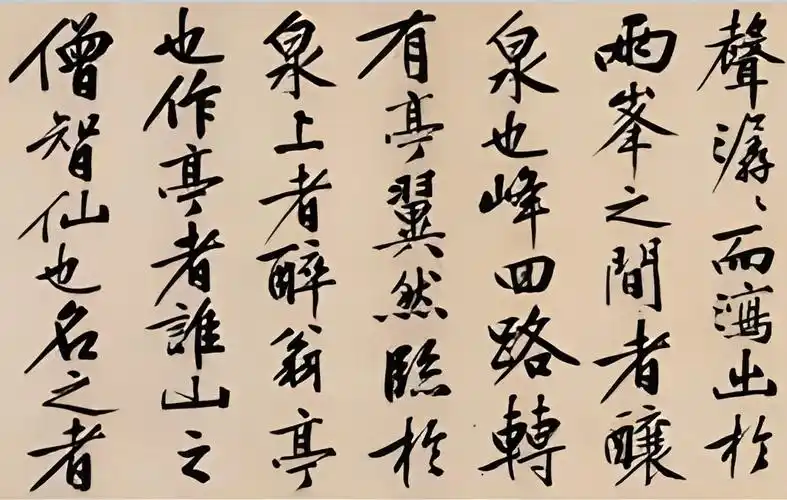 聲潺〻而瀉出於
兩峯之間者釀
泉也峰回路轉
有亭翼然臨於
泉上者醉翁亭
也作亭者誰山之
僧智仙也名之者